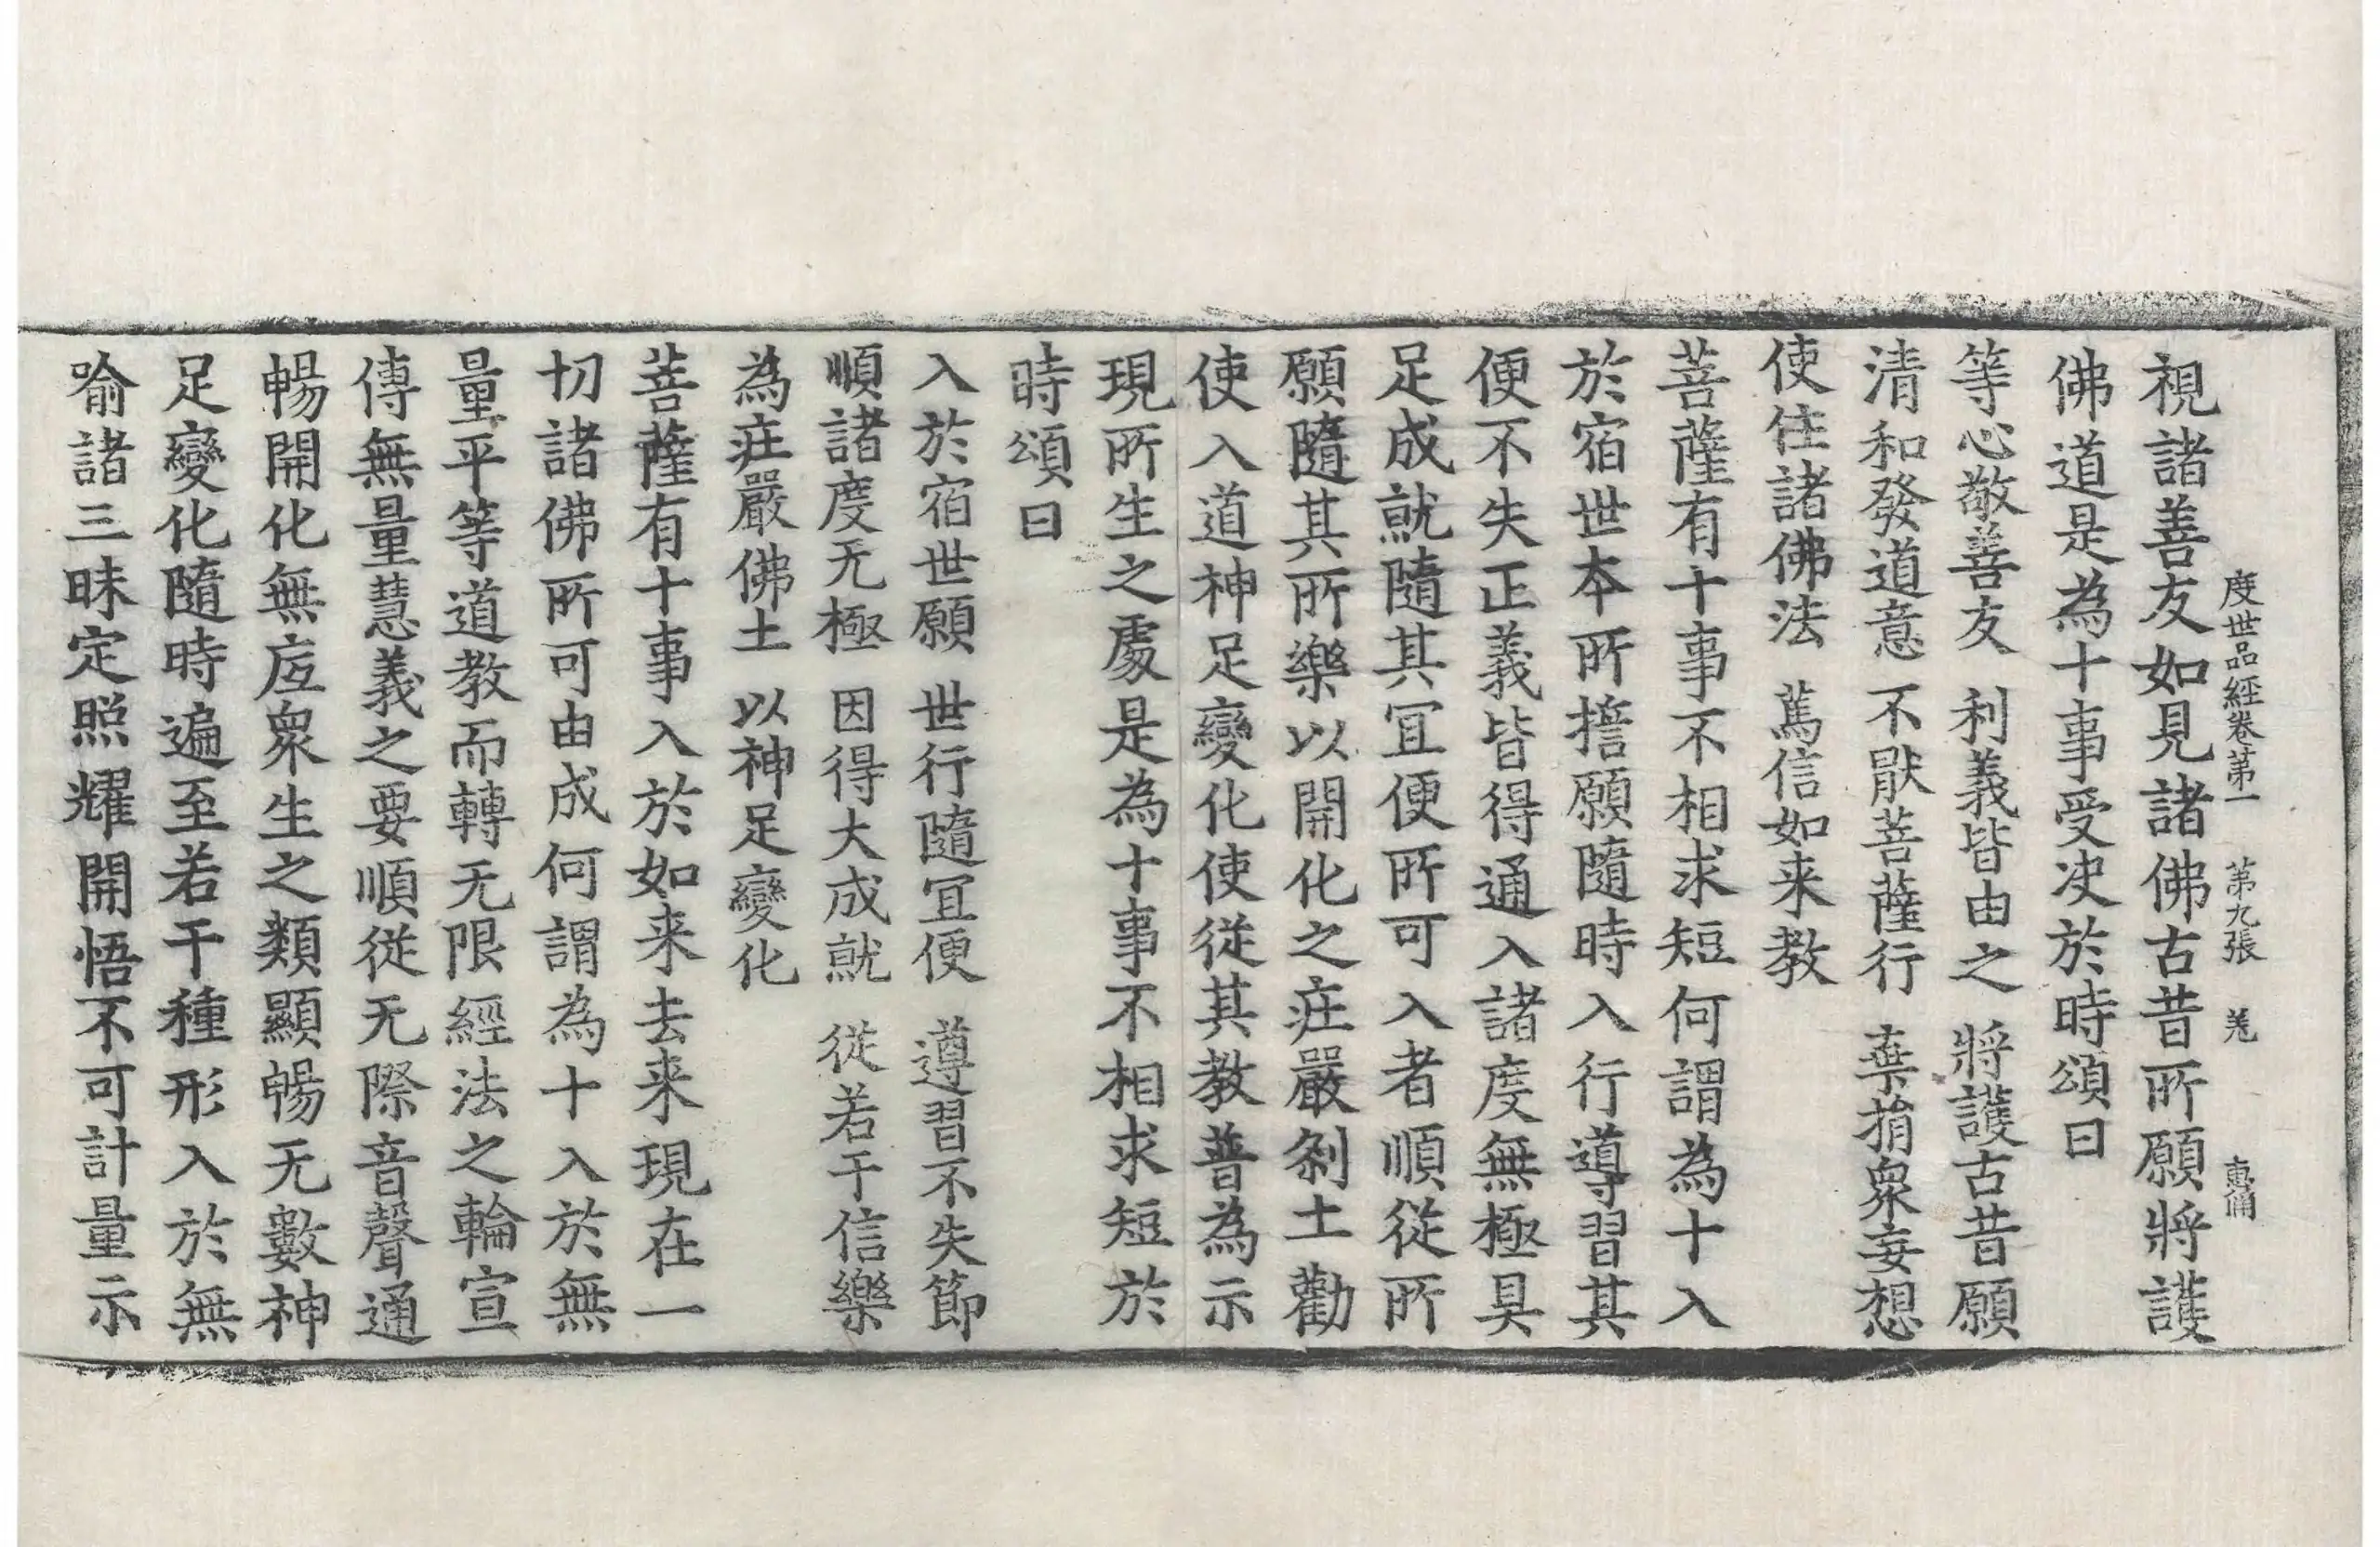 度世品經卷第一　第九張　羌　惠脩
視諸善友如見諸佛古昔所願將護
佛道是為十事受决於時頌曰
等心敬善友　利義皆由之　將護古昔願
清和發道意　不猒菩薩行　棄捐衆妄想
使住諸佛法　篤信如来教
菩薩有十事不相求短何謂為十入
於宿世本所擔願隨時入行導習其
便不失正義皆得通入諸度無極具
足成就隨其冝便所可入者順從所
願隨其所樂以開化之庄嚴剎土勸
使入道神足變化使從其教普為示
現所生之處是為十事不相求短於
時頌曰
入於宿世願　世行隨冝便　遵習不失節
順諸度无極　因得大成就　從若干信樂
為庄嚴佛土　以神足變化
菩薩有十事入於如来去来現在一
切諸佛所可由成何謂為十入於無
量平等道教而轉无限經法之輪宣
傳無量慧義之要順從无際音聲通
暢開化無底衆生之類顯暢无數神
足變化隨時遍至若干種形入於無
喻諸三昧定照耀開悟不可計量示